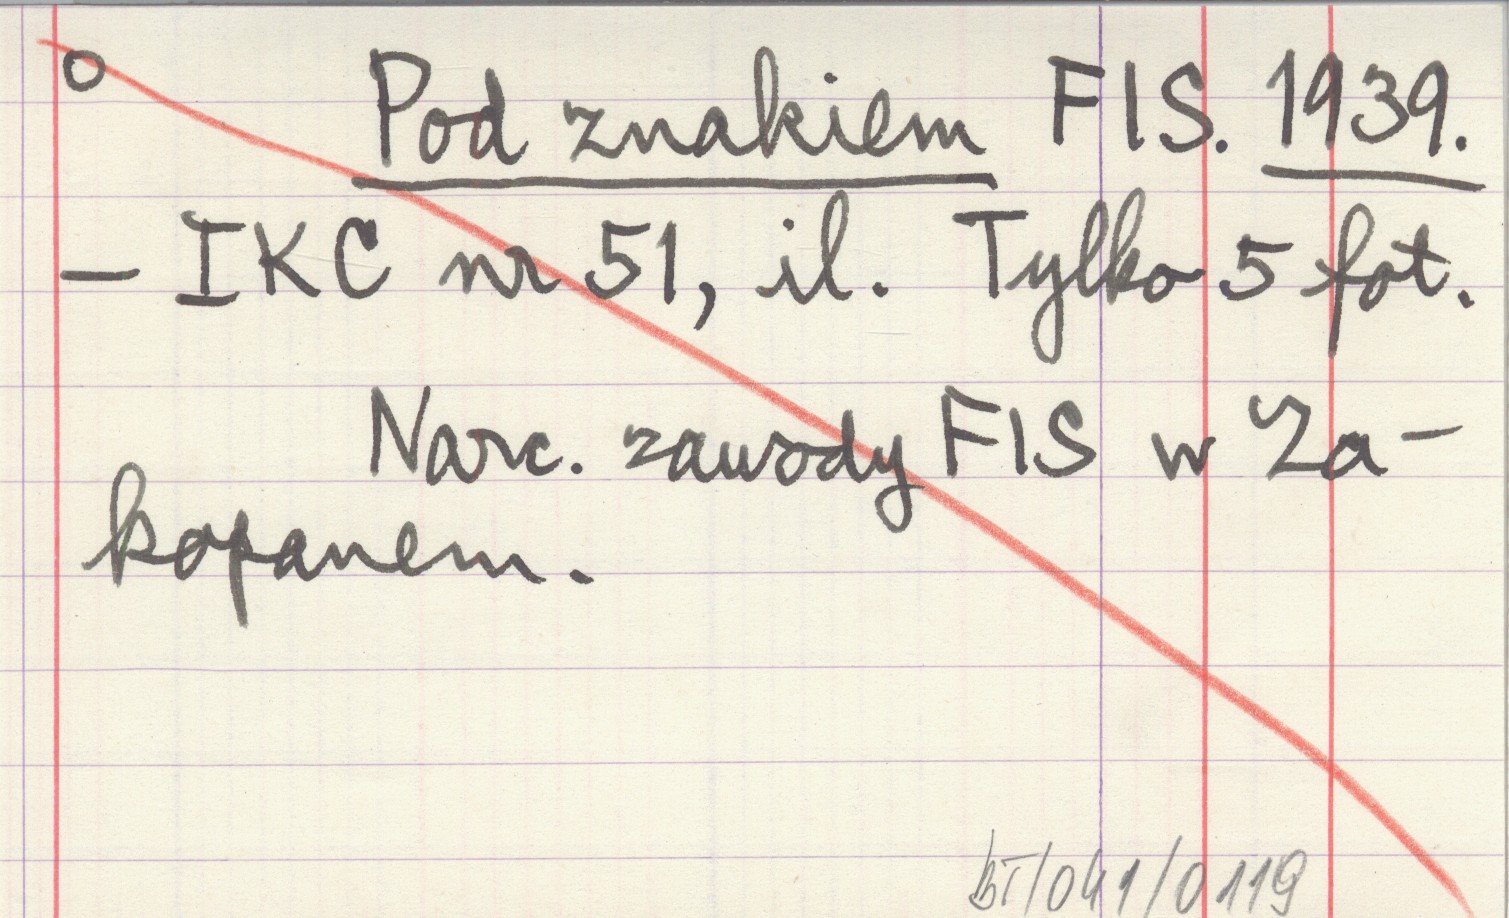 o Pod znakiem FIS. 1939.
– IKC nr 51, il. Tylko 5 fot.
Narc. zawody FIS w Za-
kopanem.
BT/041/0119